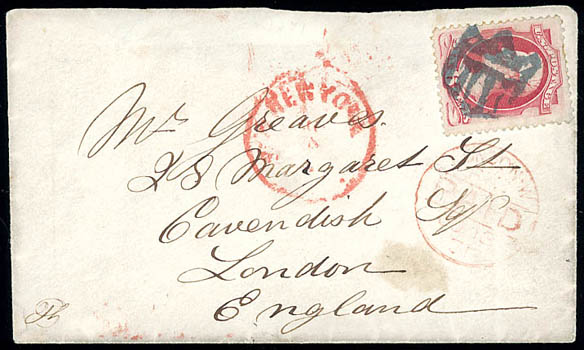 NEW YORK
PAID
Mr Greaves.
28 Margaret St
Cavendish Sqr
London
England